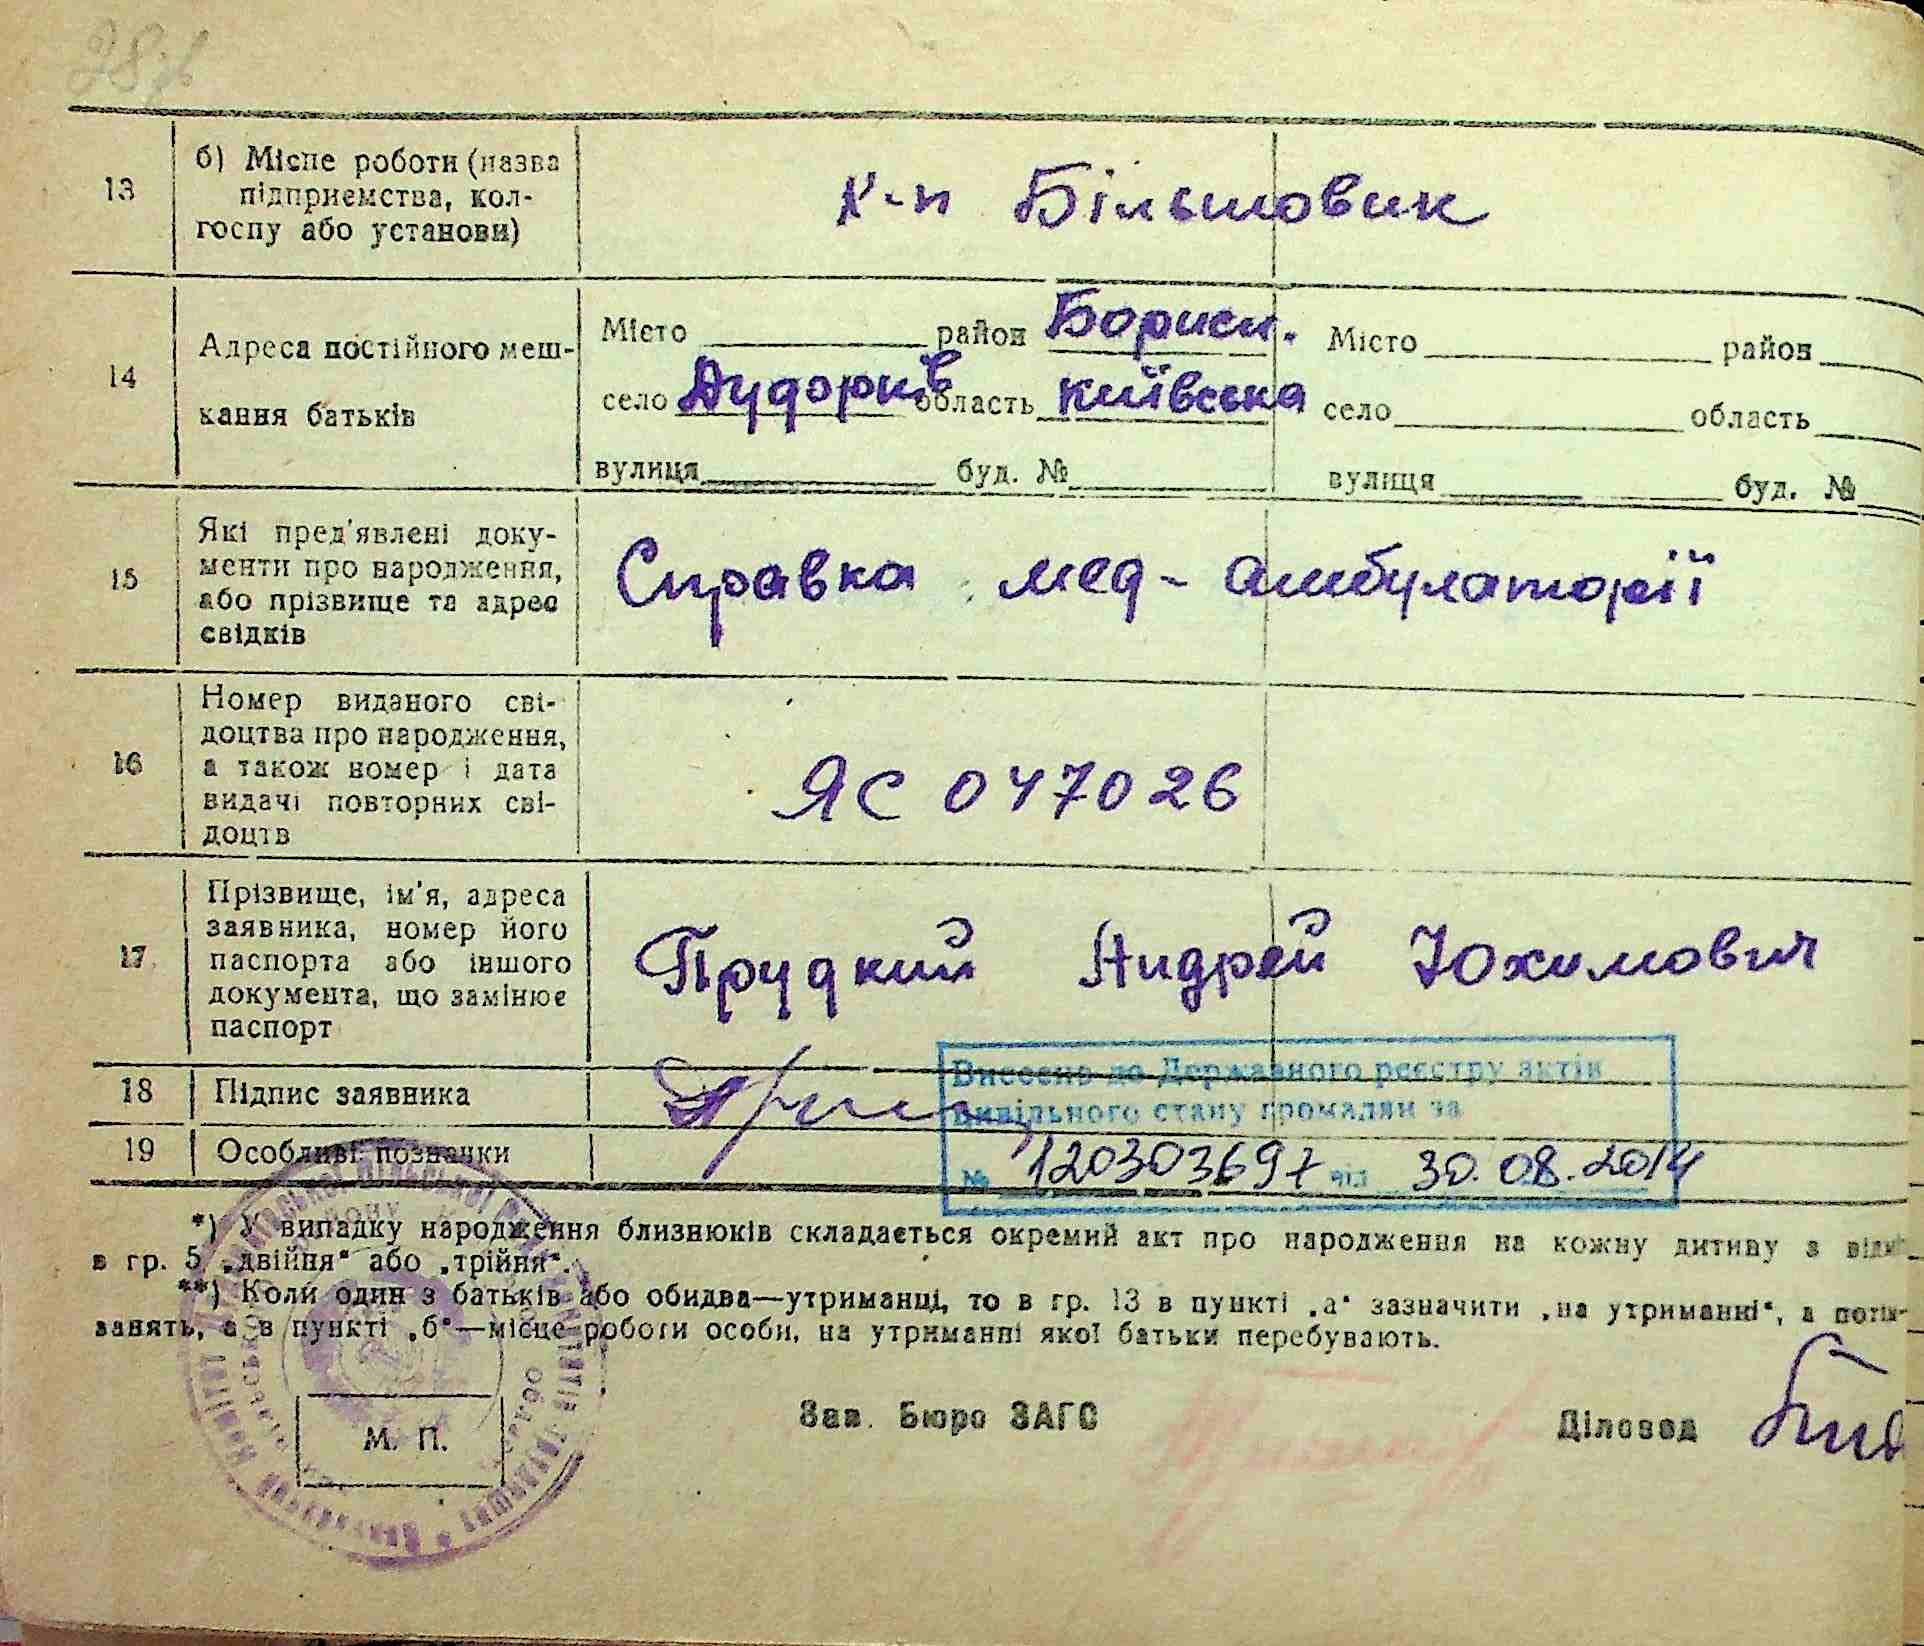 13
б) Місце роботи (назва
підприємства, кол-
госпу або установи)
к-п Більшовик
14
Адреса постійного меш-
кання батьків
Місто район Борисп. Місто район
село Дудорків область київська село область
вулиця буд. № вулиця буд. №
15
Які пред'явлені доку-
менти про народження,
або прізвище та адрес
свідків
Справка мед-амбулаторії
16
Номер виданого сві-
доцтва про народження,
а також номер і дата
видачі повторних сві-
доцтв
ЯС 047026
17
Прізвище, ім'я, адреса
заявника, номер його
паспорта або іншого
документа, що замінює
паспорт
Прудкий Андрей Юхимович
18
Підпис заявника
19
Особливі позначки
Внесено до Державного реєстру актів
цивільного стану громадян за
№ 120303697 від 30.08.2014
*) У випадку народження близнюків складається окремий акт про народження на кожну дитину з
в гр. 5 „двійня“ або „трійня“.
**) Коли один з батьків або обидва—утриманці, то в гр. 13 в пункті „а“ зазначити „на утриманні“, а
занять, а в пункті „б“—місце роботи особи, на утриманні якої батьки перебувають.
М. П.
Зав. Бюро ЗАГС
Діловод